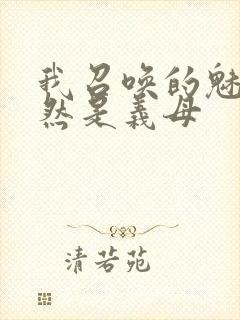 我召唤的魅
然是义母
清若苑